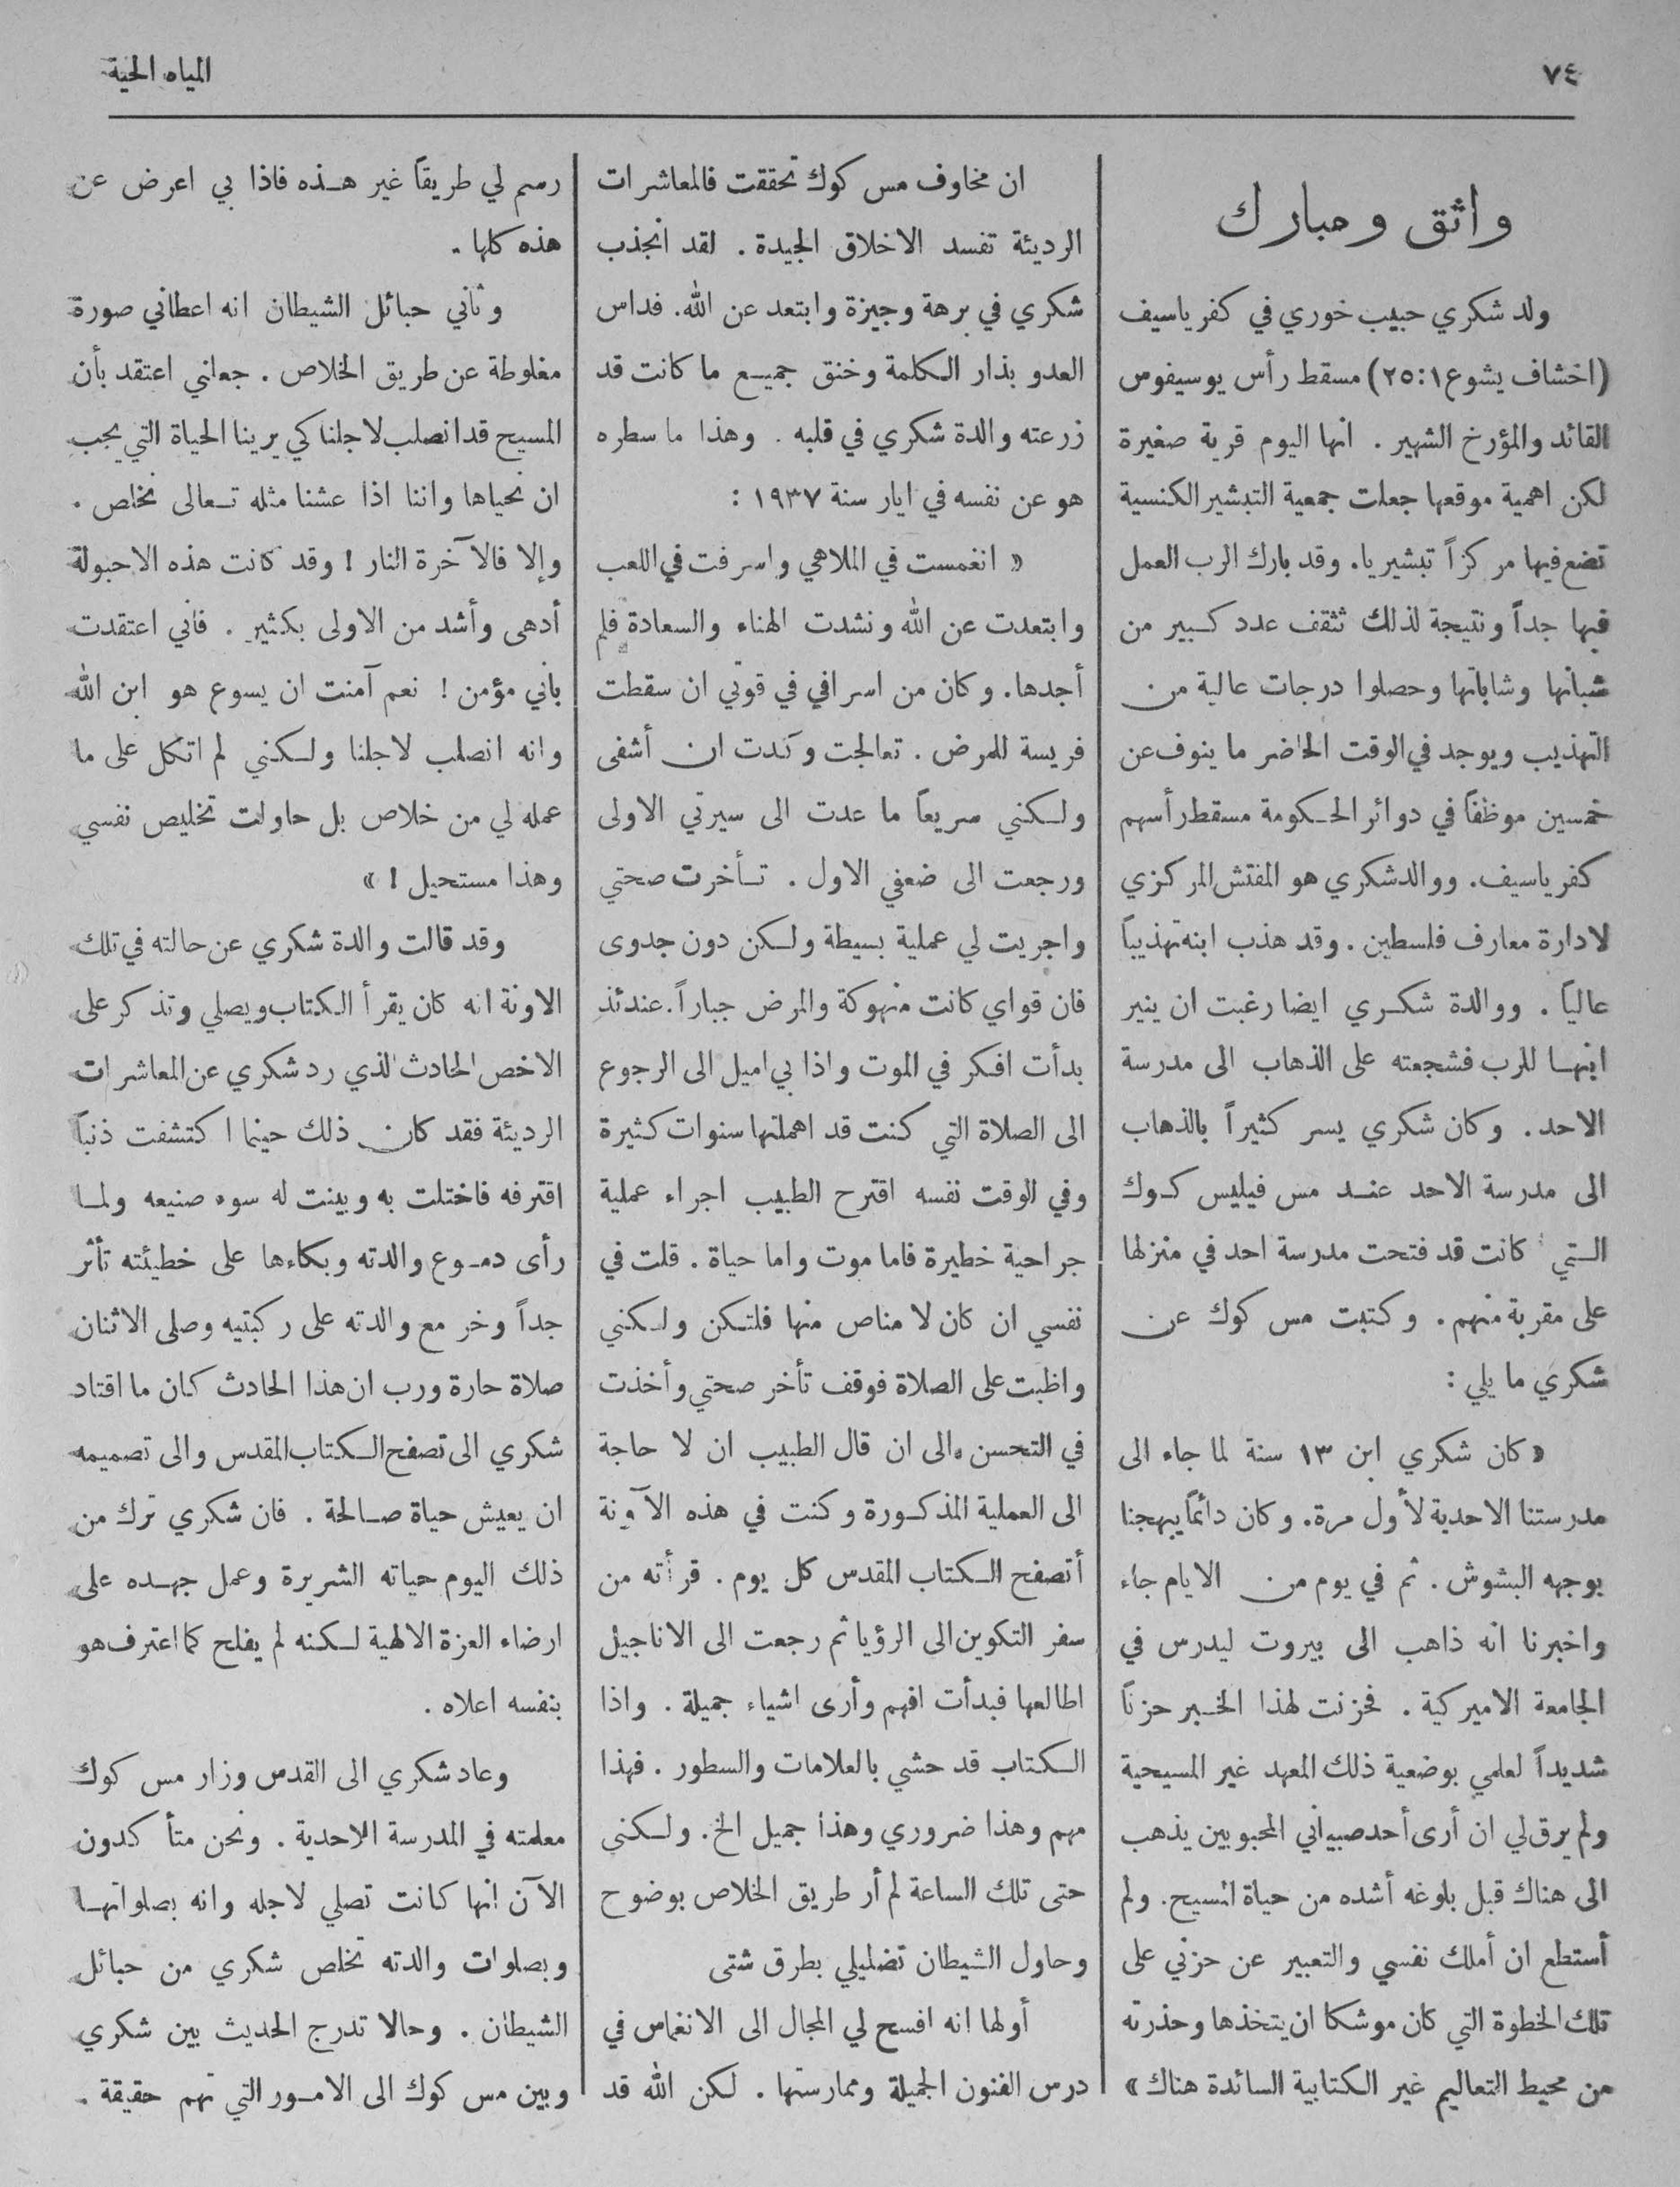 ٧٤
المياه الحية
واثق ومبارك
ولد شكري حبيب خوري في كفر ياسيف
(اخشاف يشوع ١:٢٥) مسقط رأس يوسيفوس
القائد والمؤرخ الشهير . انها اليوم قرية صغيرة
لكن اهمية موقعها جعلت جمعية التبشير الكنسية
تضع فيها مركزاً تبشيريا. وقد بارك الرب العمل
فيها جداً ونتيجة لذلك تثقف عدد كبير من
شبانها وشاباتها وحصلوا درجات عالية من
التهذيب ويوجد في الوقت الحاضر ما ينوف عن
خمسين موظفاً في دوائر الحكومة مسقط رأسهم
كفر ياسيف. ووالد شكري هو المفتش المركزي
لادارة معارف فلسطين . وقد هذب ابنه تهذيباً
عالياً . ووالدة شكري ايضا رغبت ان ينير
ابنها للرب فشجعته على الذهاب الى مدرسة
الاحد . وكان شكري يسر كثيراً بالذهاب
الى مدرسة الاحد عند مس فيليس كوك
التي كانت قد فتحت مدرسة احد في منزلها
على مقربة منهم . وكتبت مس كوك عن
شكري ما يلي :
« كان شكري ابن ١٣ سنة لما جاء الى
مدرستنا الاحدية لأول مرة. وكان دائماً يبهجنا
بوجهه البشوش . ثم في يوم من الايام جاء
واخبرنا انه ذاهب الى بيروت ليدرس في
الجامعة الاميركية . فحزنت لهذا الخبر حزناً
شديداً لعلمي بوضعية ذلك المعهد غير المسيحية
ولم يرق لي ان أرى أحد صبياني المحبوبين يذهب
الى هناك قبل بلوغه أشده من حياة المسيح. ولم
أستطع ان أملك نفسي والتعبير عن حزني على
تلك الخطوة التي كان موشكا ان يتخذها وحذرته
من محيط التعاليم غير الكتابية السائدة هناك »
ان مخاوف مس كوك تحققت فالمعاشرات
الرديئة تفسد الاخلاق الجيدة . لقد انجذب
شكري في برهة وجيزة وابتعد عن الله. فداس
العدو بذار الكلمة وخنق جميع ما كانت قد
زرعته والدة شكري في قلبه . وهذا ما سطره
هو عن نفسه في ايار سنة ١٩٣٧ :
« انغمست في الملاهي واسرفت في اللعب
وابتعدت عن الله ونشدت الهناء والسعادة فلم
أجدها. وكان من اسرافي في قوتي ان سقطت
فريسة للمرض . تعالجت وكدت ان أشفى
ولكني سريعاً ما عدت الى سيرتي الاولى
ورجعت الى ضعفي الاول . تأخرت صحتي
واجريت لي عملية بسيطة ولكن دون جدوى
فان قواي كانت منهوكة والمرض جباراً. عندئذ
بدأت افكر في الموت واذا بي اميل الى الرجوع
الى الصلاة التي كنت قد اهملتها سنوات كثيرة
وفي الوقت نفسه اقترح الطبيب اجراء عملية
جراحية خطيرة فاما موت واما حياة . قلت في
نفسي ان كان لا مناص منها فلتكن ولكني
واظبت على الصلاة فوقف تأخر صحتي وأخذت
في التحسن. الى ان قال الطبيب ان لا حاجة
الى العملية المذكورة وكنت في هذه الآونة
أتصفح الكتاب المقدس كل يوم . قرأته من
سفر التكوين الى الرؤيا ثم رجعت الى الاناجيل
اطالعها فبدأت افهم وأرى اشياء جميلة . واذا
الكتاب قد حشي بالعلامات والسطور . فهذا
مهم وهذا ضروري وهذا جميل الخ. ولكني
حتى تلك الساعة لم أر طريق الخلاص بوضوح
وحاول الشيطان تضليلي بطرق شتى
أولها انه افسح لي المجال الى الانغماس في
درس الفنون الجميلة وممارستها . لكن الله قد
رسم لي طريقاً غير هذه فاذا بي اعرض عن
هذه كلها .
وثاني حبائل الشيطان انه اعطاني صورة
مغلوطة عن طريق الخلاص . جعلني اعتقد بأن
المسيح قد انصلب لاجلنا كي يرينا الحياة التي يجب
ان نحياها واننا اذا عشنا مثله تعالى نخلص .
وإلا فالآخرة النار ! وقد كانت هذه الاحبولة
أدهى وأشد من الاولى بكثير . فاني اعتقدت
باني مؤمن ! نعم آمنت ان يسوع هو ابن الله
وانه انصلب لاجلنا ولكني لم اتكل على ما
عمله لي من خلاص بل حاولت تخليص نفسي
وهذا مستحيل ! »
وقد قالت والدة شكري عن حالته في تلك
الاونة انه كان يقرأ الكتاب ويصلي وتذكر على
الاخص الحادث الذي رد شكري عن المعاشرات
الرديئة فقد كان ذلك حينما اكتشفت ذنباً
اقترفه فاختلت به وبينت له سوء صنيعه ولما
رأى دموع والدته وبكاءها على خطيئته تأثر
جداً وخر مع والدته على ركبتيه وصلى الاثنان
صلاة حارة ورب ان هذا الحادث كان ما اقتاد
شكري الى تصفح الكتاب المقدس والى تصميمه
ان يعيش حياة صالحة . فان شكري ترك من
ذلك اليوم حياته الشريرة وعمل جهده على
ارضاء العزة الالهية لكنه لم يفلح كما اعترف هو
بنفسه اعلاه .
وعاد شكري الى القدس وزار مس كوك
معلمته في المدرسة الاحدية . ونحن متأكدون
الآن انها كانت تصلي لاجله وانه بصلواتها
وبصلوات والدته تخلص شكري من حبائل
الشيطان . وحالا تدرج الحديث بين شكري
وبين مس كوك الى الامور التي تهم حقيقة .